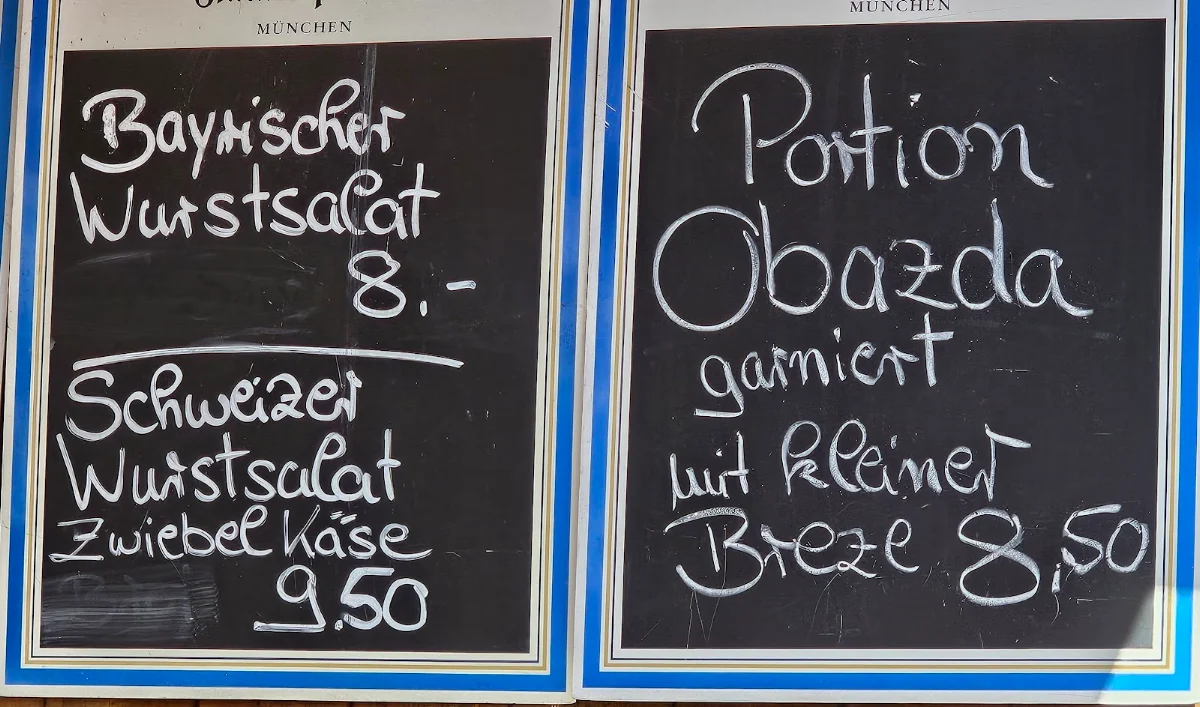 MÜNCHEN
Bayrischer
Wurstsalat
8.-
Schweizer
Wurstsalat
Zwiebel Käse
9.50
MÜNCHEN
Portion
Obazda
garniert
mit kleiner
Breze 8,50